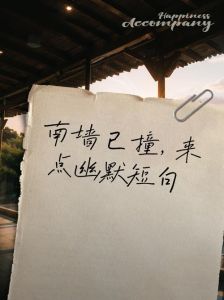 Happiness
Accompany
南墙已撞，来
点幽默短句